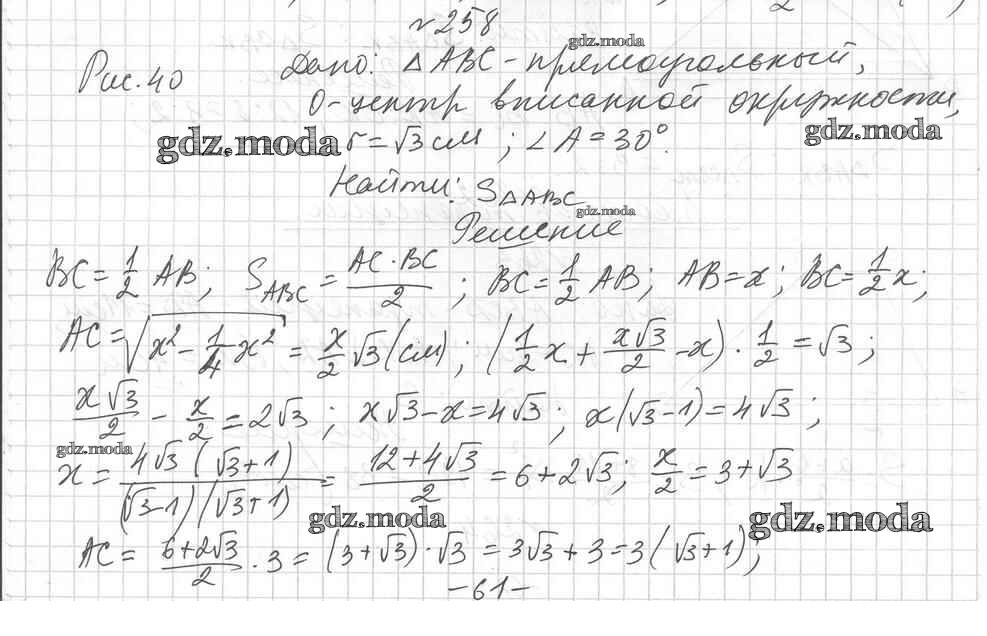 №258
gdz.moda
Рис. 40
Дано: △ABC - прямоугольный,
О-центр вписанной окружности,
gdz.moda
gdz.moda
r = √3 см; ∠A = 30°.
Найти: S△ABC
gdz.moda
Решение
BC = 1/2 AB; S_ABC = (AC · BC)/2; BC = 1/2 AB; AB = x; BC = 1/2 x;
AC = √(x² - 1/4 x²) = x/2 √3 (см); (1/2 x + x√3/2 - x) · 1/2 = √3;
x√3/2 - x/2 = 2√3; x√3 - x = 4√3; x(√3 - 1) = 4√3;
gdz.moda
x = 4√3(√3+1)/((√3-1)(√3+1)) = (12+4√3)/2 = 6+2√3; x/2 = 3+√3
gdz.moda
gdz.moda
AC = (6+2√3)/2 · 3 = (3+√3) · √3 = 3√3 + 3 = 3(√3+1);
-61-